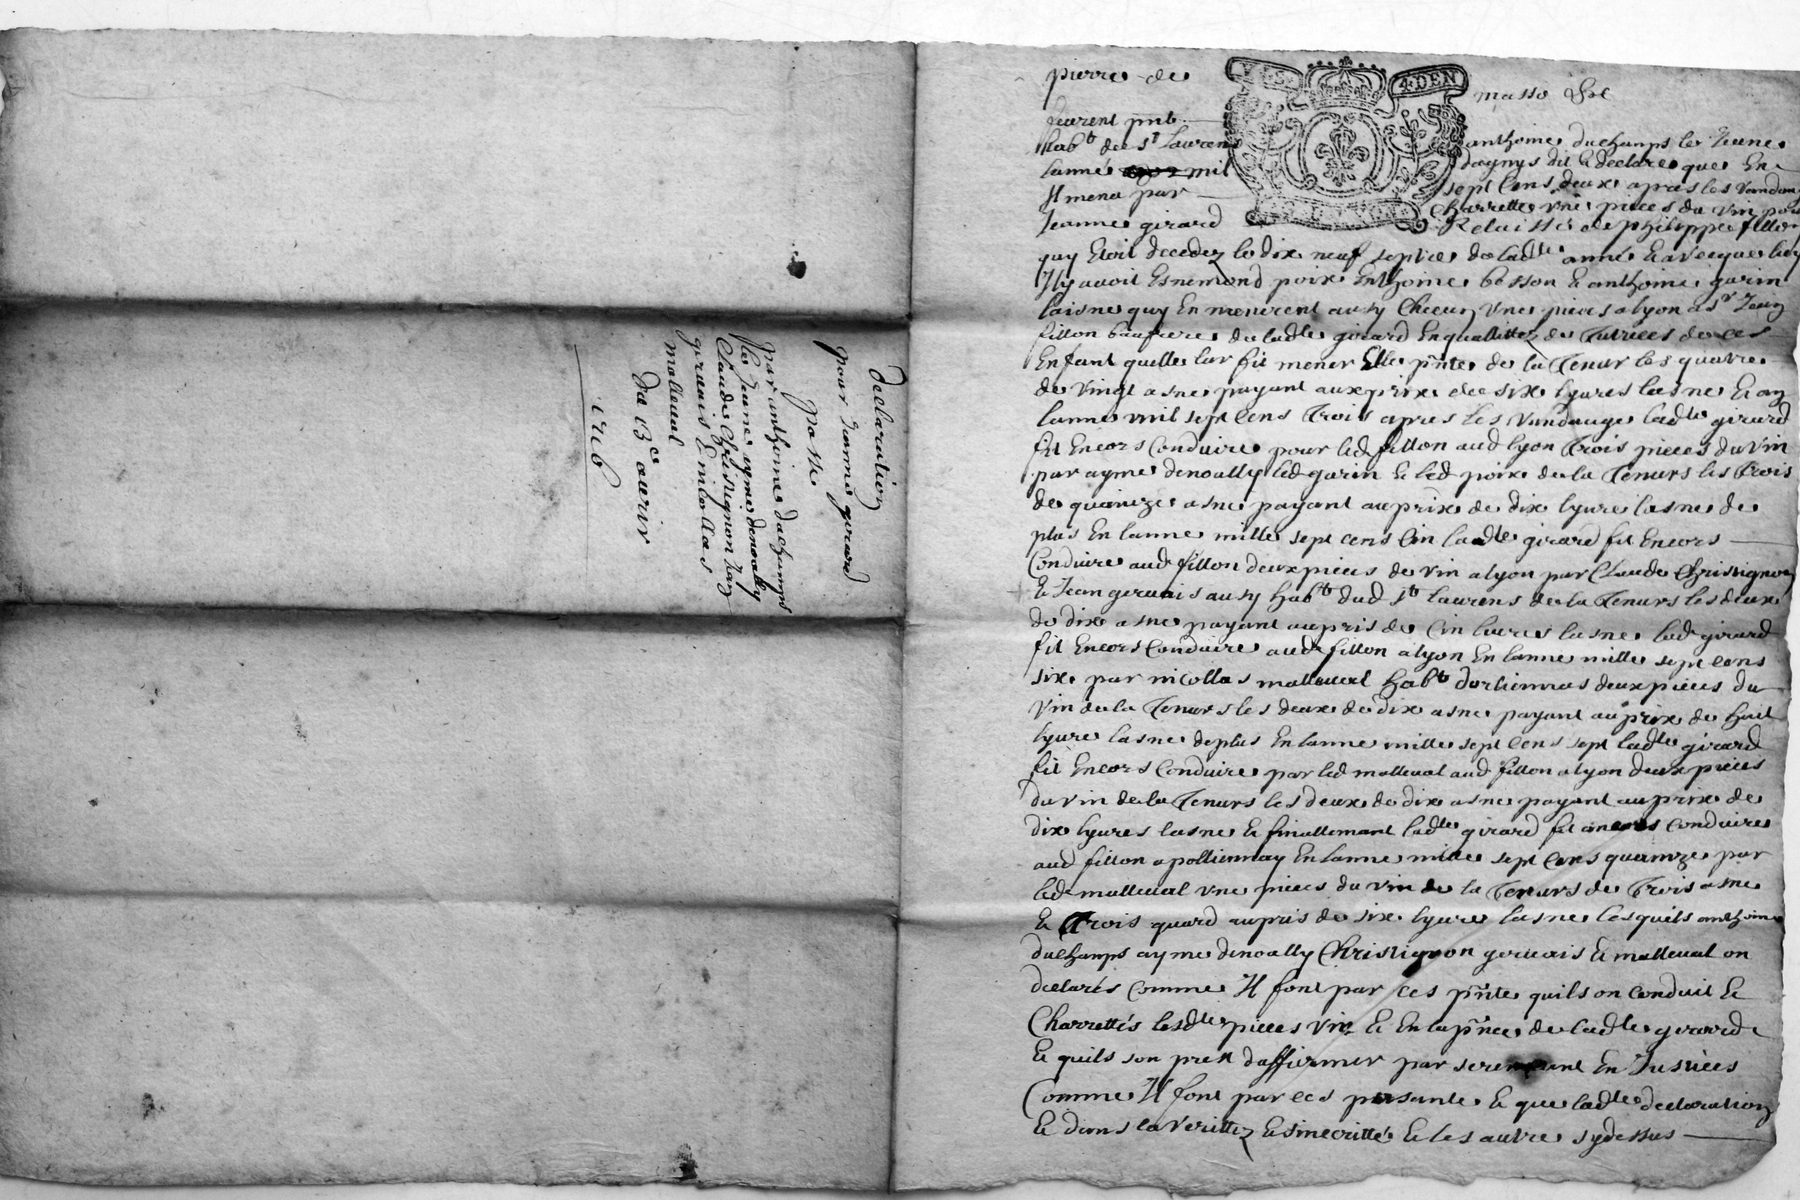 declaration
pour Jeanne girard
passe
par anthoine duchamps
le Jeune ayme denoally
Claude Christignon Jan
gervais & nicollas
malleval
Du 13ce
4 DEN
pierre de
masso
laurent pnt
habt de st Laurens
anthoine duchamps le Jeune
lanné mil
dagnys dit & declare que En
Il mena par
sept Cens deux apres les vandange
charrette vne pieces du vin pour
Jeanne girard
Relaissé de philippe fillon
quy Etoit decedez le dix neuf septre de ladte anné & avecque luy
Il y avoit Esnemond poix Enthoine besson & anthoine garin
laisne quy En menerent ausy Checun vne pieces a lyon a sr Jean
fillon baufrere de ladte girard En quallittez de Tutrices de ces
Enfant quelle luy fit mener Elle pnte de la Tenur les quatre
de vingt asne payant aux prix de six lyures lasne & en
lanne mil sept Cens Trois apres les vandange ladte girard
fit Encors Conduire pour led fillon aud lyon Trois pieces du vin
par ayme denoally led garin & led poix de la Tenurs les Trois
de quainze asne payant au prix de dix lyure lasne de
plus En lanne mille sept cens Cin ladte girard fit Encors
Conduire aud fillon deux pieces de vin a lyon par Claude Christignon
& Jean gervais ausy habt dud st Laurens de la Tenurs les deux
de dix asne payant au pris de Cin liures lasne lad girard
fit Encors Conduire aud fillon a lyon En lanne mille sept Cens
six par nicollas malleval habt deux pieces du
vin de la Tenurs les deux de dix asne payant au prix de huit
lyure lasne de plus En lanne mille sept Cens sept ladte girard
fit Encors Conduire par led malleval aud fillon a lyon deux pieces
du vin de la Tenurs les deux de dix asne payant au prix de
dix lyures lasne & finallemant ladte girard fit encors conduire
aud fillon a pollionnay En lanne mille sept Cens quainze par
led malleval vne pieces du vin de la Tenurs de Trois asne
& Trois quard au pris de six lyure lasne lesquels anthoine
duchamps ayme denoally Christignon gervais & malleval on
declarés comme Il font par ces pnte quils on conduit &
Charrettés lesdte pieces vin & En la pnce de ladte girard
& quils son prest daffirmer par seremant En Justices
Comme Il font par ces presante & que ladte declaration
& dans la Veritté & sincerittés & les autre sy dessus